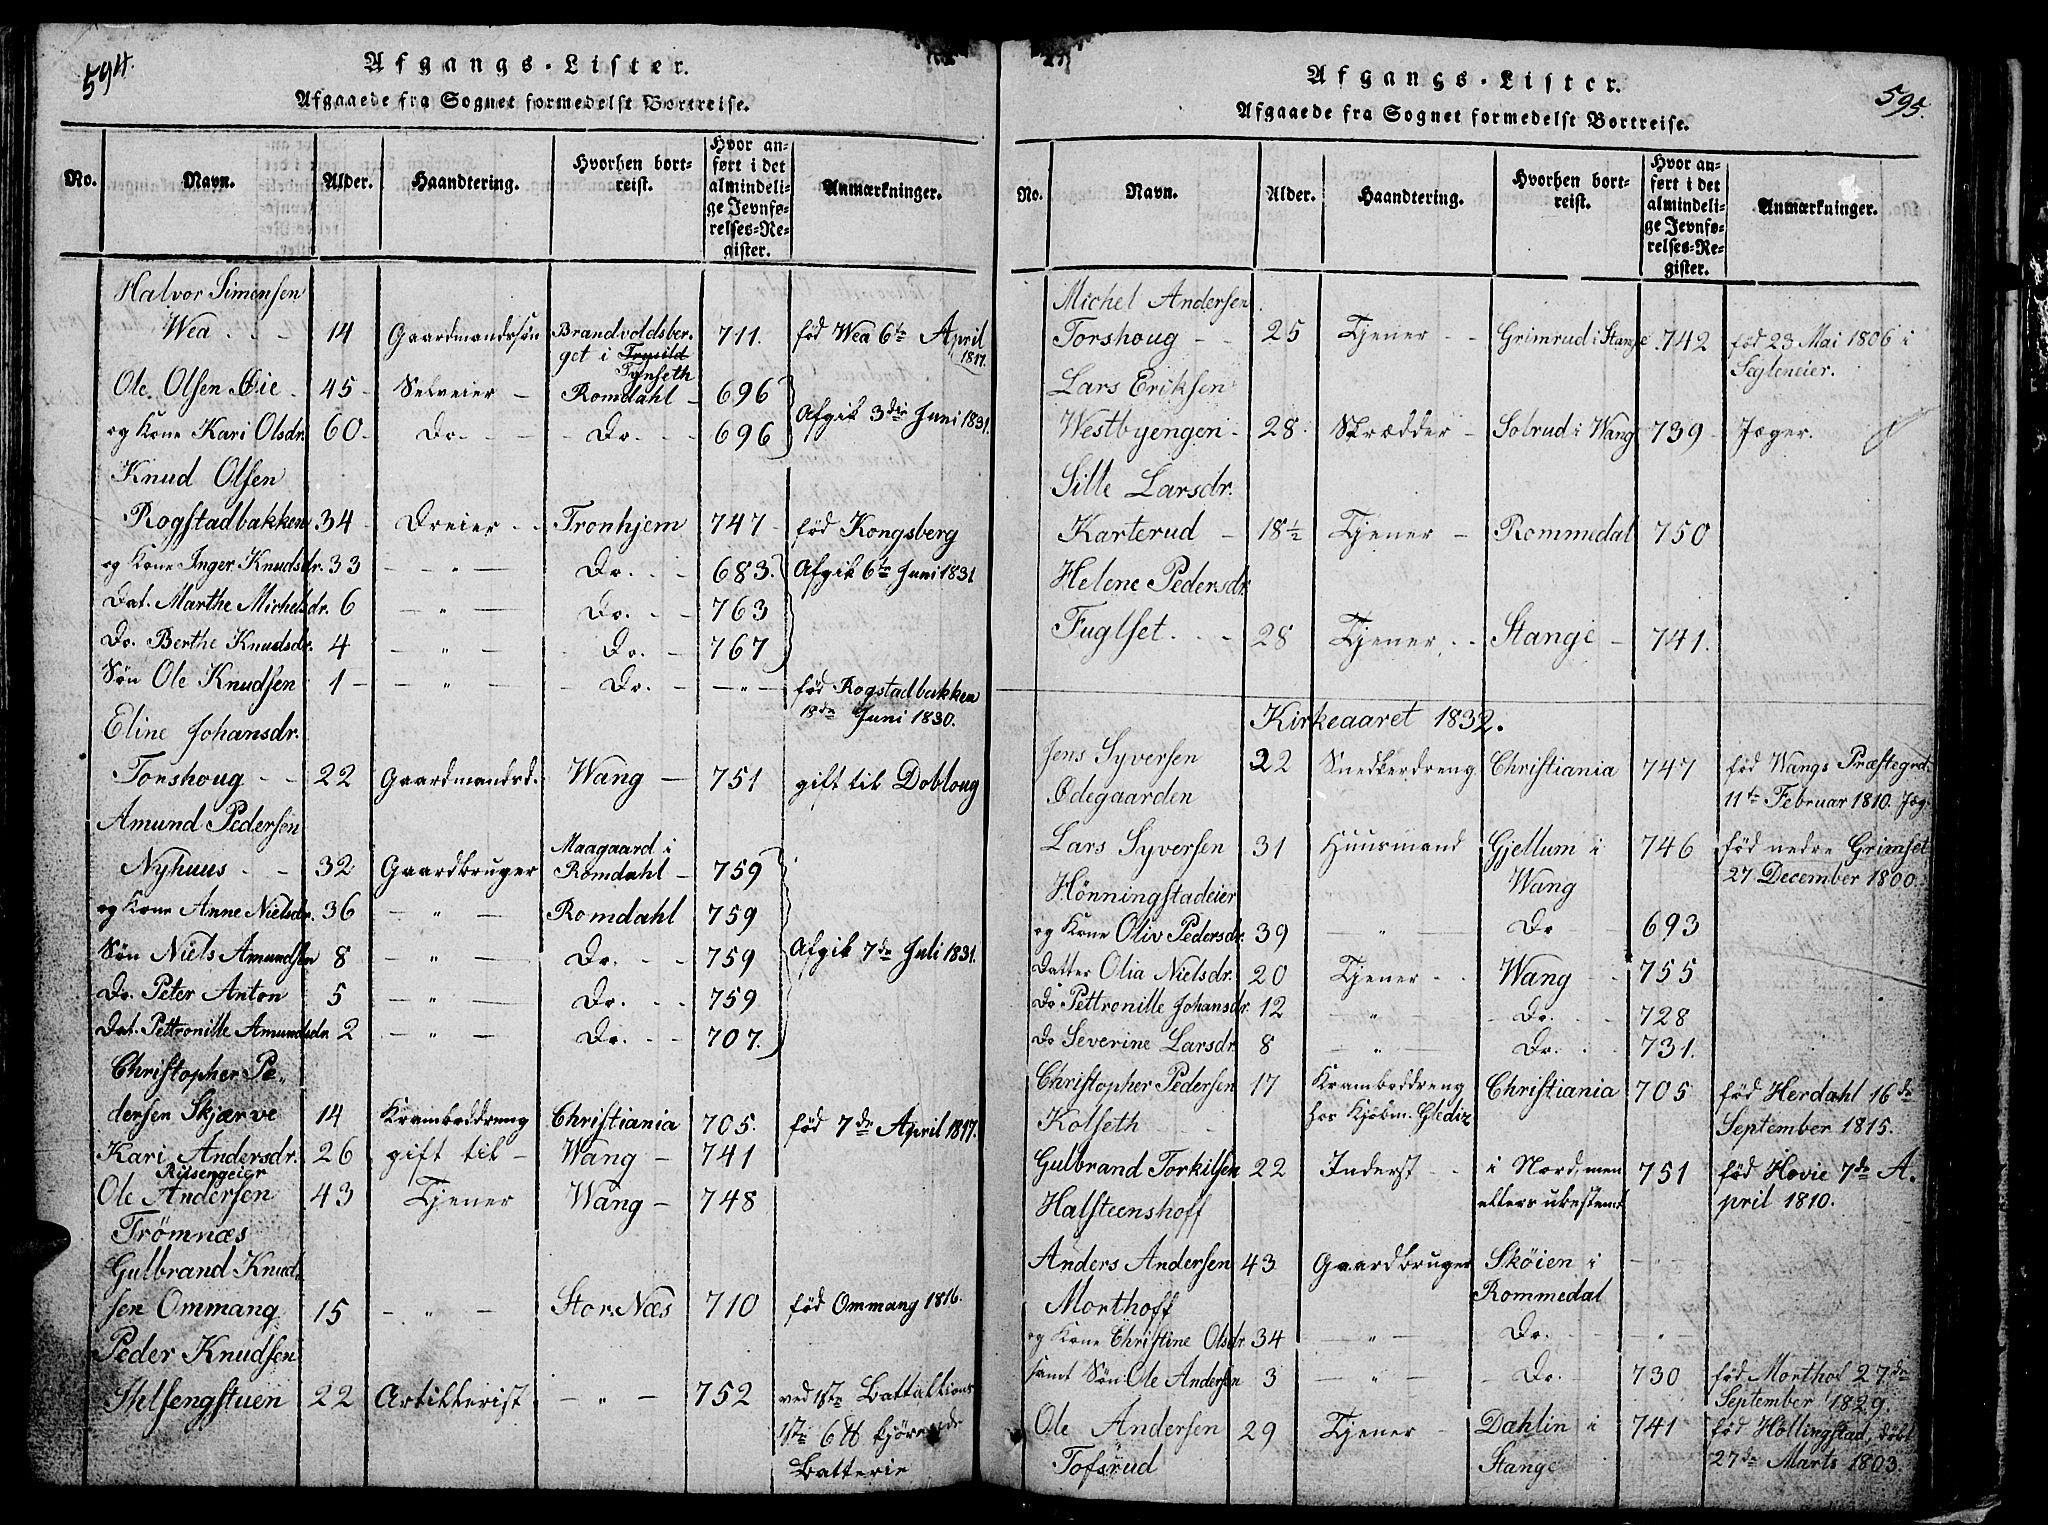 594.
Afgangs-Lister.
Afgaaede fra Sognet formedelst Bortreise.
No. Navn. Alder. Haandtering. Hvorhen bortreist. Hvor anført i det almindelige Jevnførelses-Register. Anmærkninger.
Halvor Simensen
Wea 14 Gaardmandssøn Brandvoldsber- 711. fød Wea 6te April
get i Trysild 1817.
Tynseth
Ole Olsen Øie 45 Selveier Romdahl 696
Afgik 3die Juni 1831.
og Kone Kari Olsdr. 60 Do. Do. 696
Knud Olsen
Rogstadbakken 34 Dreier Tronhjem 747 fød Kongsberg
og Kone Inger Knudsdr. 33 " Do. 683. Afgik 6te Juni 1831
Dat. Marthe Michelsdr. 6 " Do. 763
Do. Berthe Knudsdr. 4 " Do. 767
Søn Ole Knudsen 1 " Do. " fød Rogstadbakken
18de Juni 1830.
Eline Johansdr.
Torshoug 22 Gaardmandsd. Wang 751 gift til Dobloug
Amund Pedersen
Maagaard i
Nyhuus 32 Gaardbruger Romdahl 759
og Kone Anne Nielsdr. 36 " Romdahl 759
Søn Niels Amundsen 8 " Do. 759 Afgik 7de Juli 1831.
Do. Peter Anton 5 " Do. 759
Dat. Pettronille Amundsdr. 2 " Do. 707.
Christopher Pe-
dersen Skjærve 14 Kramboddreng Christiania 705. fød 7de April 1817.
Kari Andersdr. 26 gift til Wang 741
Riisengeier
Ole Andersen 43 Tjener Wang 748
Trømnæs
Gulbrand Knud-
sen Ommang 15 " Stor-Næs 710 fød Ommang 1816.
Peder Knudsen
Stelsengstuen 22 Artillerist " 752 ved 1ste Battallions
1ste 6 ℔ kjørende
Batterie
595.
Afgangs-Lister.
Afgaaede fra Sognet formedelst Bortreise.
No. Navn. Alder. Haandtering. Hvorhen bortreist. Hvor anført i det almindelige Jevnførelses-Register. Anmærkninger.
Michel Andersen
Torshoug 25 Tjener Grimrud i Stange 742 fød 23 Mai 1806 i
Sagleneier.
Lars Eriksen
Westbyengen 28 Skrædder Solrud i Wang 739 Jæger.
Sille Larsdr.
Karterud 18½ Tjener Rommedal 750
Helene Pedersdr
Fuglset 28 Tjener Stange 741.
Kirkeaaret 1832.
Jens Syversen 22 Snedkerdreng Christiania 747 fød Wangs Præstegield
Ødegaarden 11te Februar 1810. Jæg.
Lars Syversen 31 Huusmand Gjellum i 746 fød nedre Grimset
Hönningstadeier Wang 27 December 1800.
og Kone Oliv Pedersdr. 39 " Do 693
Datter Olia Nielsdr. 20 Tjener Wang 755
Do Pettronille Johansdr. 12 " Do. 728
Do Severine Larsdr 8 " Do. 731.
Christopher Pedersen 17 Kramboddreng Christiania 705 fød Herdahl 16de
Kolseth hos Kjøbm. Glediz September 1815.
Gulbrand Torkilsen 22 Inderst i Nord, men 751 fød Hovie 7de A-
Halsteenshoff ellers ubestemt pril 1810.
Anders Andersen 43 Gaardbruger Skøien i
Morthoff Rommedal
og Kone Christine Olsdr. 34 " Do. "
samt Søn Ole Andersen 3 " Do. 730 fød Morthof 27de
September 1829.
Ole Andersen 29 Tjener Dahlin i 741 fød Hollingstad, døbt
Tofsrud Stange 27de Marts 1803.